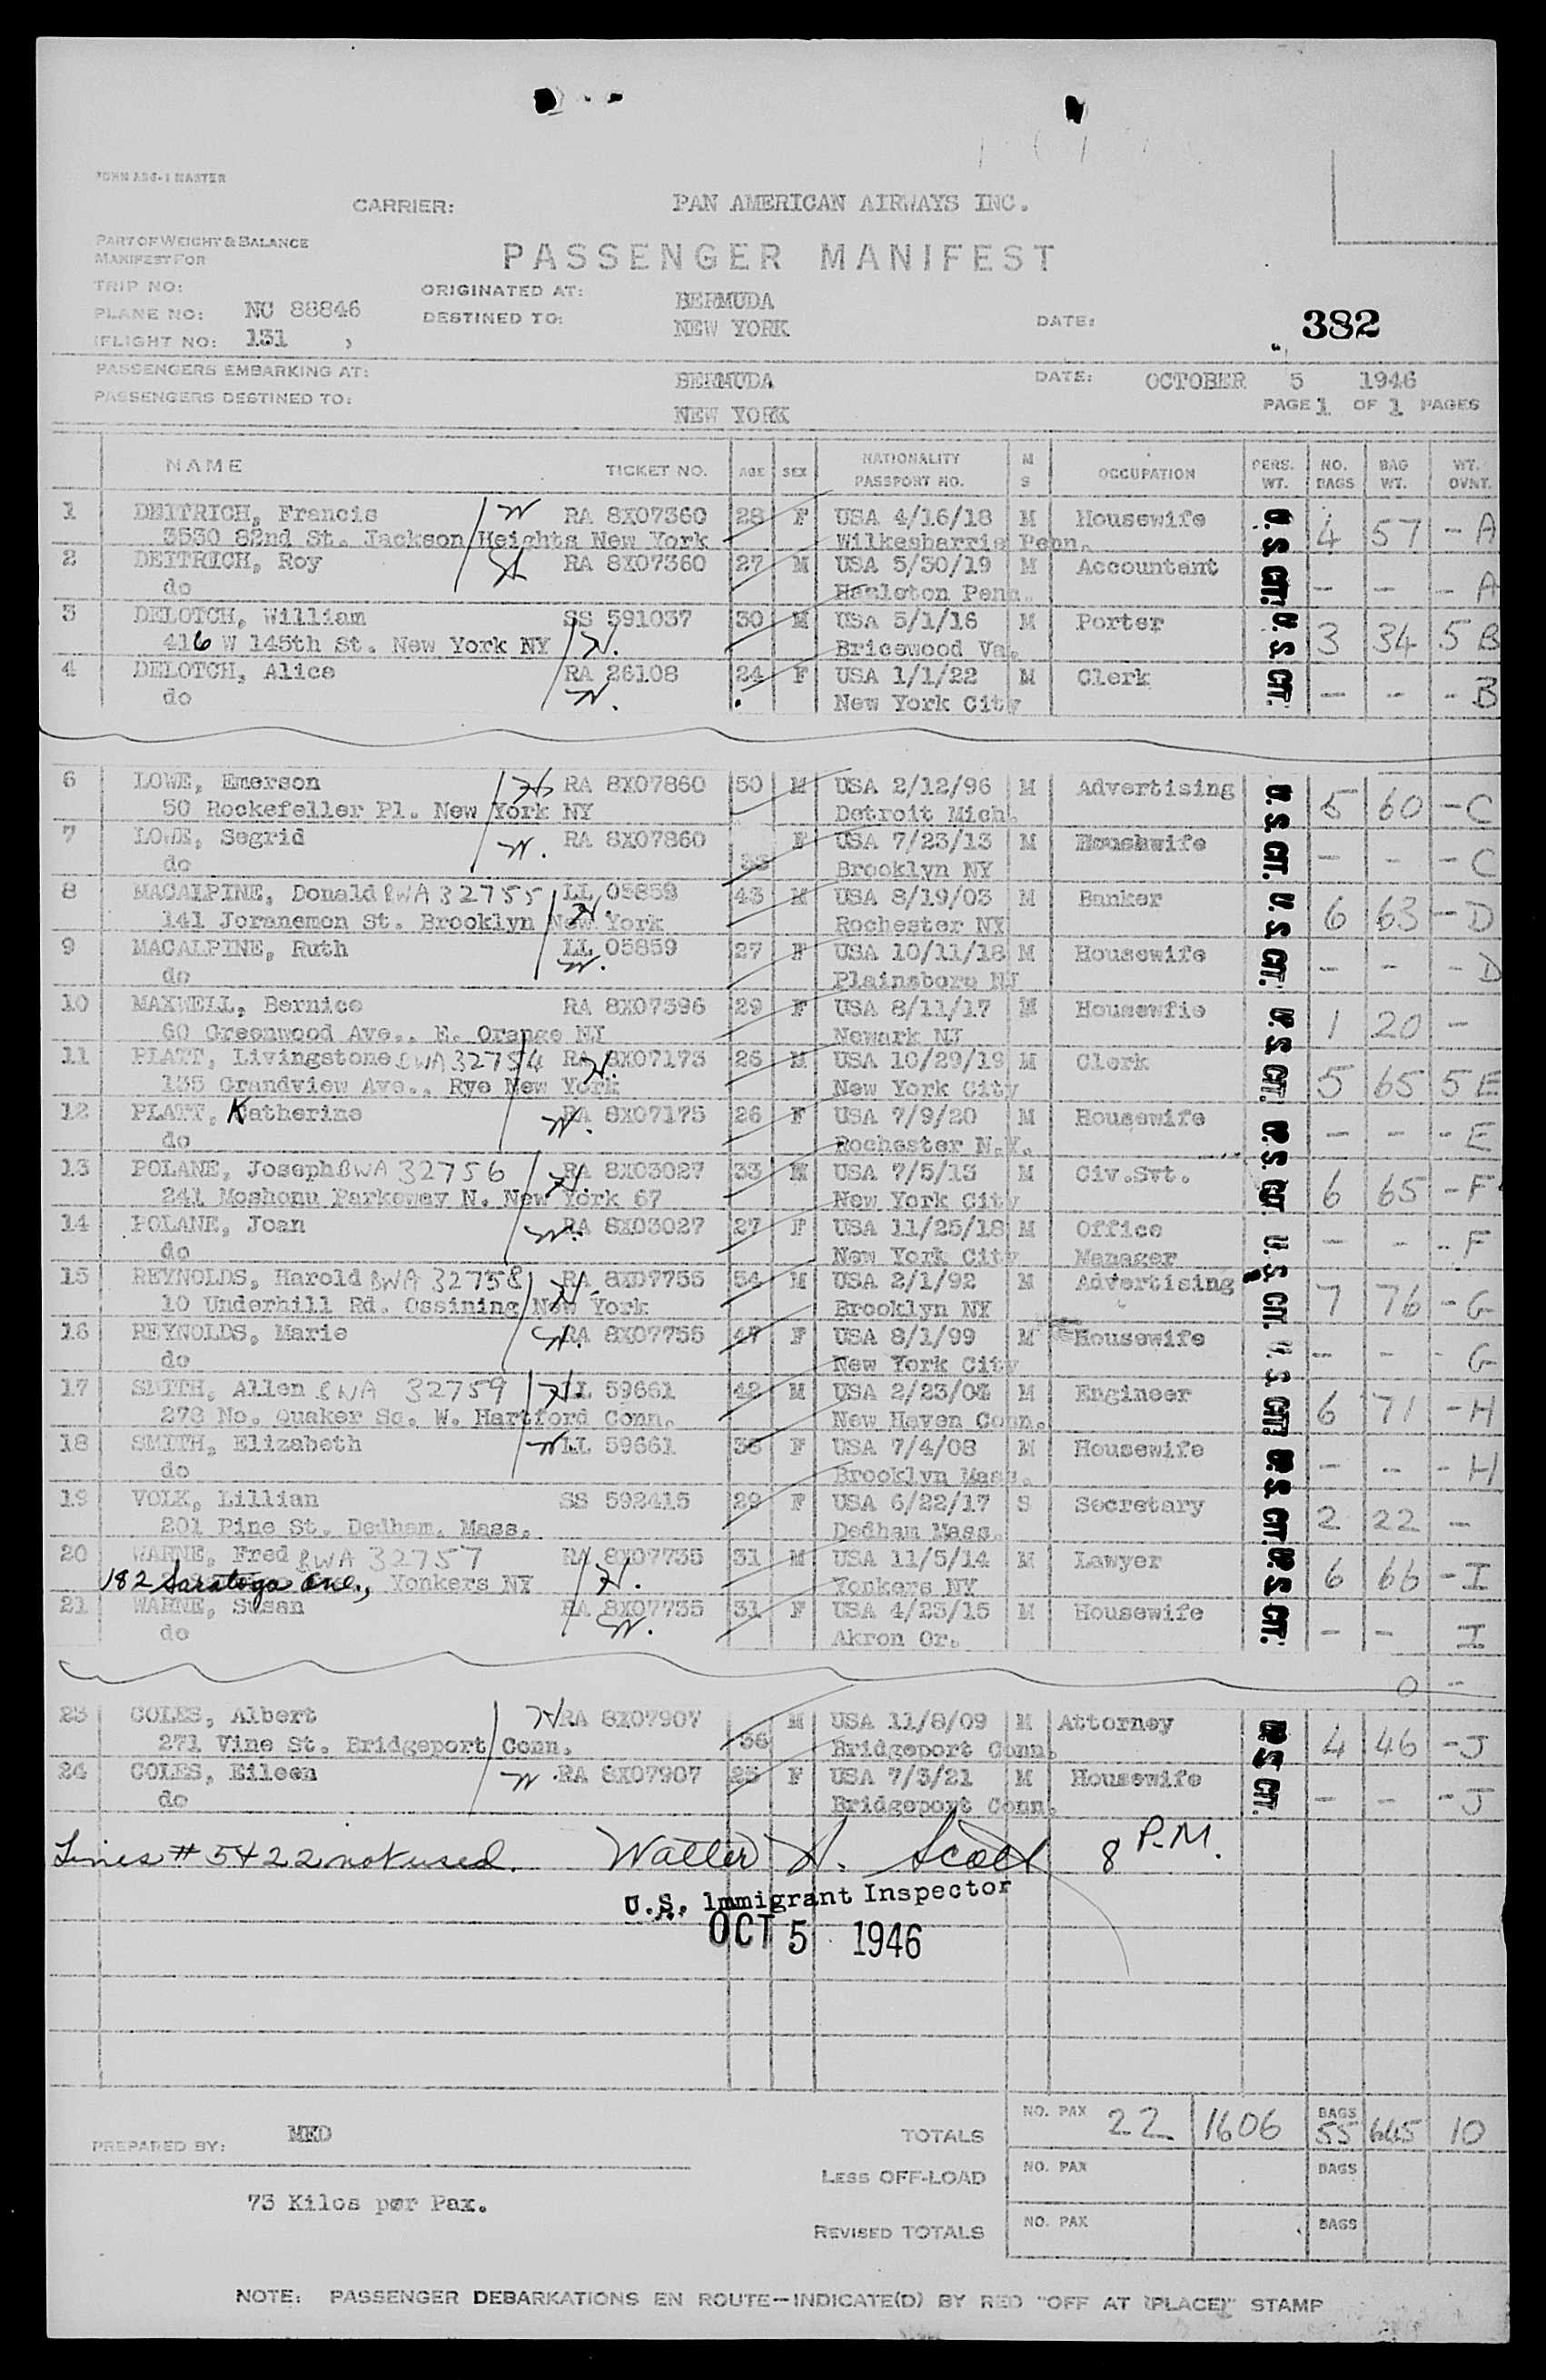 FORM ABG-1 MASTER
CARRIER: PAN AMERICAN AIRWAYS INC.
PART OF WEIGHT & BALANCE
MANIFEST FOR
PASSENGER MANIFEST
TRIP NO:
ORIGINATED AT: BERMUDA
PLANE NO: NC 88846
DESTINED TO: NEW YORK
DATE:
382
FLIGHT NO: 131
PASSENGERS EMBARKING AT: BERMUDA DATE: OCTOBER 5 1946
PASSENGERS DESTINED TO: NEW YORK
PAGE 1 OF 1 PAGES
NAME TICKET NO. AGE SEX NATIONALITY PASSPORT NO. M S OCCUPATION PERS. WT. NO. BAGS BAG WT. WT. OVNT.
1 DEITRICH, Francis RA 8X07360 28 F USA 4/16/18 M Housewife U.S. CIT. 4 57 - A
3530 82nd St. Jackson Heights New York Wilkesbarris Penn.
2 DEITRICH, Roy RA 8X07360 27 M USA 5/30/19 M Accountant - - - A
do Hazleton Penn.
3 DELOTCH, William SS 591037 30 M USA 5/1/16 M Porter U.S. CIT. 3 34 5 B
416 W 145th St. New York NY Bricewood Va.
4 DELOTCH, Alice RA 26108 24 F USA 1/1/22 M Clerk - - - B
do New York City
6 LOWE, Emerson RA 8X07860 50 M USA 2/12/96 M Advertising U.S. CIT. 5 60 - C
50 Rockefeller Pl. New York NY Detroit Mich.
7 LOWE, Segrid RA 8X07860 33 F USA 7/23/13 M Housewife - - - C
do Brooklyn NY
8 MACALPINE, Donald BWA 32755 LL 05859 43 M USA 8/19/03 M Banker U.S. CIT. 6 63 - D
141 Joranemon St. Brooklyn New York Rochester NY
9 MACALPINE, Ruth LL 05859 27 F USA 10/11/18 M Housewife - - - D
do Plainsboro NJ
10 MAXWELL, Bernice RA 8X07396 29 F USA 8/11/17 M Housewfie U.S. CIT. 1 20 -
60 Greenwood Ave., E. Orange NJ Newark NJ
11 PLATT, Livingstone BWA 32754 RA 8X07173 26 M USA 10/29/19 M Clerk 5 65 5 E
135 Grandview Ave., Rye New York New York City
12 PLATT, Katherine RA 8X07175 26 F USA 7/9/20 M Housewife U.S. CIT. - - - E
do Rochester N.Y.
13 POLANE, Joseph BWA 32756 RA 8X03027 33 M USA 7/5/13 M Civ.Svt. 6 65 - F
241 Moshonu Parkeway N. New York 67 New York City
14 POLANE, Joan RA 8X03027 27 F USA 11/25/18 M Office - - - F
do New York City Manager
15 REYNOLDS, Harold BWA 32758 RA 8X07755 54 M USA 2/1/92 M Advertising U.S. CIT. 7 76 - G
10 Underhill Rd. Ossining New York Brooklyn NY
16 REYNOLDS, Marie RA 8X07755 47 F USA 8/1/99 M Housewife - - - G
do New York City
17 SMITH, Allen BWA 32759 LL 59661 42 M USA 2/23/04 M Engineer U.S. CIT. 6 71 - H
278 No. Quaker Sc. W. Hartford Conn. New Haven Conn.
18 SMITH, Elizabeth LL 59661 38 F USA 7/4/08 M Housewife - - - H
do Brooklyn Mass.
19 VOLK, Lillian SS 592415 29 F USA 6/22/17 S Secretary U.S. CIT. 2 22 -
201 Pine St. Dedham, Mass. Dedham Mass.
20 WARNE, Fred BWA 32757 RA 8X07735 31 M USA 11/5/14 M Lawyer U.S. CIT. 6 66 - I
182 Saratoga Ave., Yonkers NY Yonkers NY
21 WARNE, Susan RA 8X07735 31 F USA 4/23/15 M Housewife - - I
do Akron Or.
0 -
23 COLES, Albert RA 8X07907 36 M USA 11/8/09 M Attorney U.S. CIT. 4 46 - J
271 Vine St. Bridgeport Conn. Bridgeport Conn.
24 COLES, Eileen RA 8X07907 25 F USA 7/3/21 M Housewife - - - J
do Bridgeport Conn.
Lines # 5 + 22 not used. Walter H. Scott 8 P.M.
U.S. Immigrant Inspector
OCT 5 1946
PREPARED BY: MEO
TOTALS NO. PAX 22 1606 BAGS 55 645 10
LESS OFF-LOAD NO. PAX BAGS
73 Kilos per Pax.
REVISED TOTALS NO. PAX BAGS
NOTE: PASSENGER DEBARKATIONS EN ROUTE—INDICATE(D) BY RED "OFF AT (PLACE)" STAMP